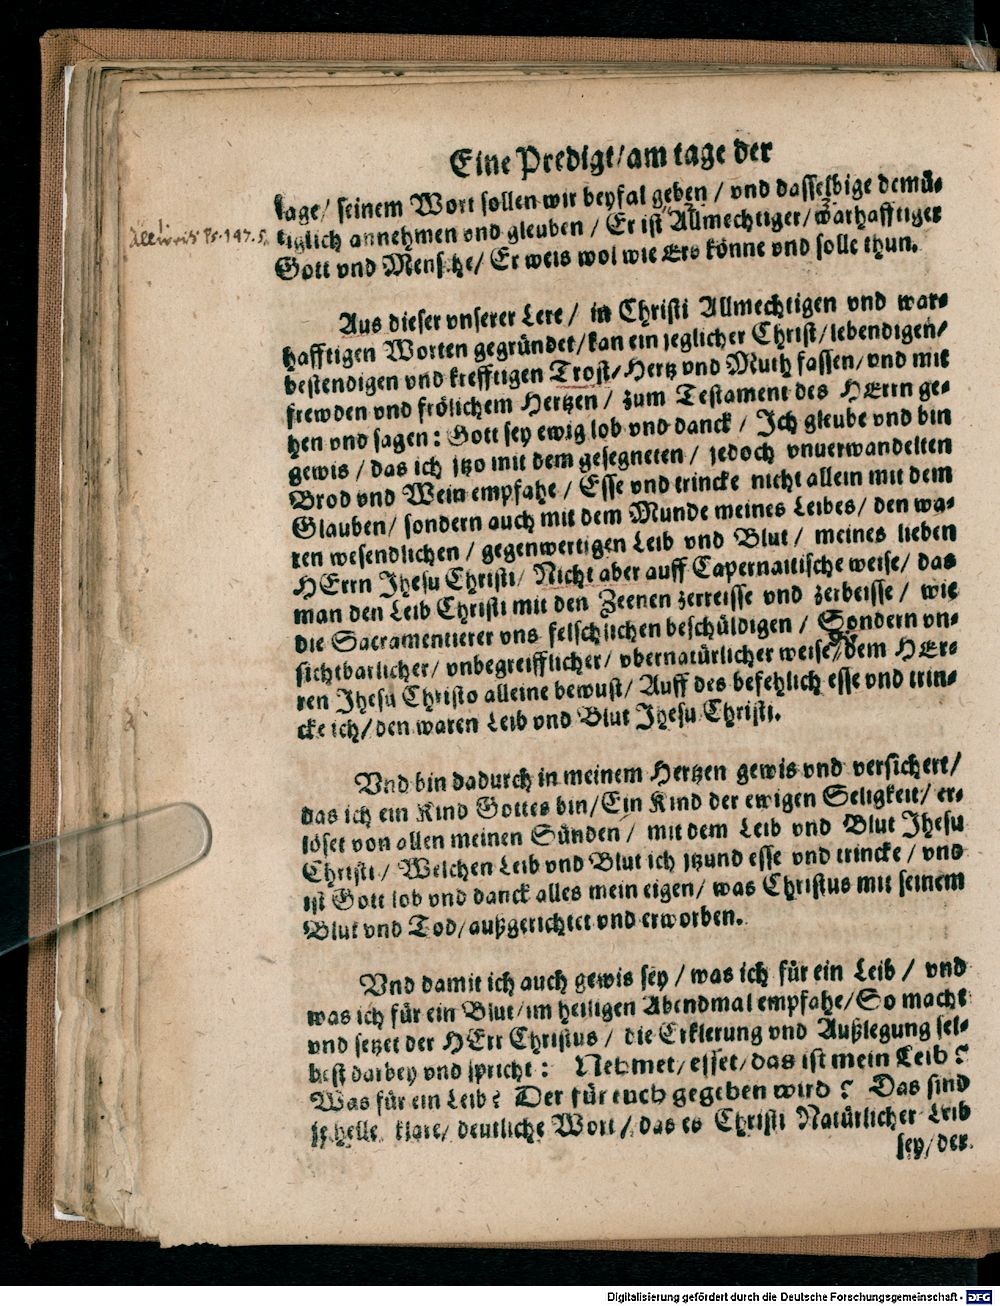 Eine Predigt/ am tage der
sage/ seinem Wort sollen wir beyfal geben / vnd dasselbige demü-
tiglich annehmen vnd gleuben / Er ist Allmechtiger/ warhafftiger
Ps. 147. 5.
Gott vnd Mensche/ Er weis wol wie Ers könne vnd solle thun.
Aus dieser vnserer Lere / in Christi Allmechtigen vnd war-
hafftigen Worten gegründet/ kan ein jeglicher Christ/ lebendigen/
bestendigen vnd krefftigen Trost/ Hertz vnd Muth fassen/ vnd mit
frewden vnd frölichem Hertzen / zum Testament des HErrn ge-
hen vnd sagen: Gott sey ewig lob vnd danck / Ich gleube vnd bin
gewis / das ich jtzo mit dem gesegneten / jedoch vnuerwandelten
Brod vnd Wein empfahe / Esse vnd trincke nicht allein mit dem
Glauben/ sondern auch mit dem Munde meines Leibes/ den wa-
ren wesendlichen / gegenwertigen Leib vnd Blut / meines lieben
HErrn Jhesu Christi/ Nicht aber auff Capernaitische weise/ das
man den Leib Christi mit den Zeenen zerreisse vnd zerbeisse / wie
die Sacramentierer vns felschlichen beschüldigen / Sondern vn-
sichtbarlicher/ vnbegreifflicher/ vbernatürlicher weise/ dem HEr-
ren Jhesu Christo alleine bewust/ Auff des befehlich esse vnd trin-
cke ich/ den waren Leib vnd Blut Jhesu Christi.
Vnd bin dadurch in meinem Hertzen gewis vnd versichert/
das ich ein Kind Gottes bin/ Ein Kind der ewigen Seligkeit/ er-
löset von allen meinen Sünden / mit dem Leib vnd Blut Jhesu
Christi / Welchen Leib vnd Blut ich jtzund esse vnd trincke / vnd
ist Gott lob vnd danck alles mein eigen/ was Christus mit seinem
Blut vnd Tod/ außgerichtet vnd erworben.
Vnd damit ich auch gewis sey / was ich für ein Leib / vnd
was ich für ein Blut/ im heiligen Abendmal empfahe/ So macht
vnd setzet der HErr Christus / die Erklerung vnd Außlegung sel-
best darbey vnd spricht: Nehmet/ esset/ das ist mein Leib?
Was für ein Leib? Der für euch gegeben wird? Das sind
je helle klare/ deutliche Wort / das es Christi Natürlicher Leib
sey/ der
Digitalisierung gefördert durch die Deutsche Forschungsgemeinschaft - DFG